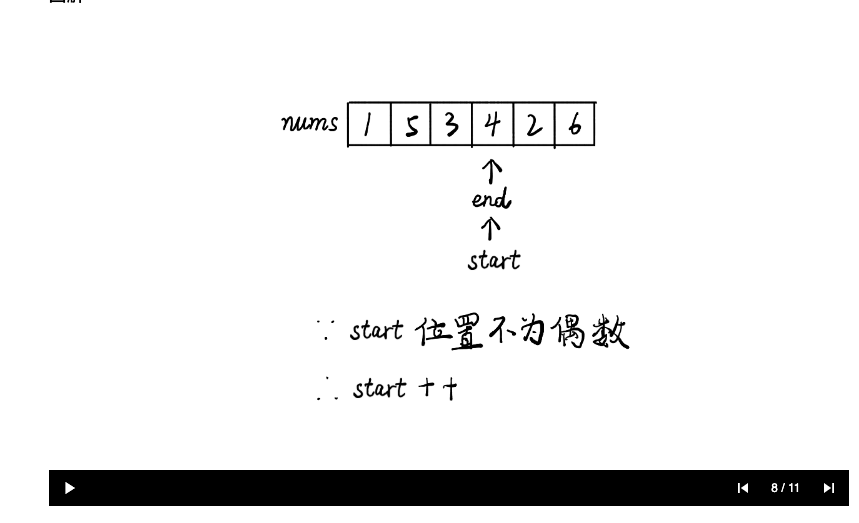 nums 1 5 3 4 2 6
end
start
∵ start 位置不为偶数
∴ start ++
8 / 11